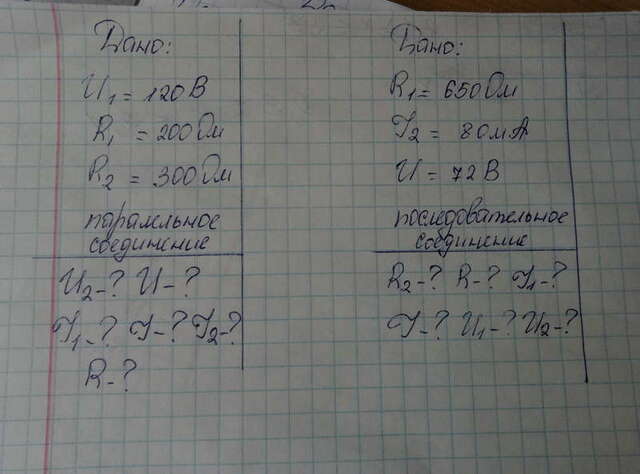 Дано:
U1 = 120 В
R1 = 200 Ом
R2 = 300 Ом
паралельное
соединение
U2 - ? U - ?
I1 - ? I - ? I2 - ?
R - ?
Дано:
R1 = 650 Ом
I2 = 80 мА
U = 72 В
последовательное
соединение
R2 - ? R - ? I1 - ?
I - ? U1 - ? U2 - ?